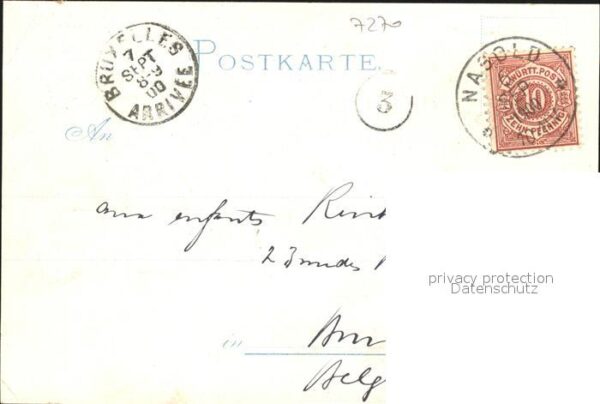 7270
BRUXELLES
7
SEPT
8-9
00
ARRIVÉE
POSTKARTE.
3
NAGOLD
WÜRTT. POST
10
ZEHN PFENNIG
An
aux enfants
privacy protection
Datenschutz
in
Belg